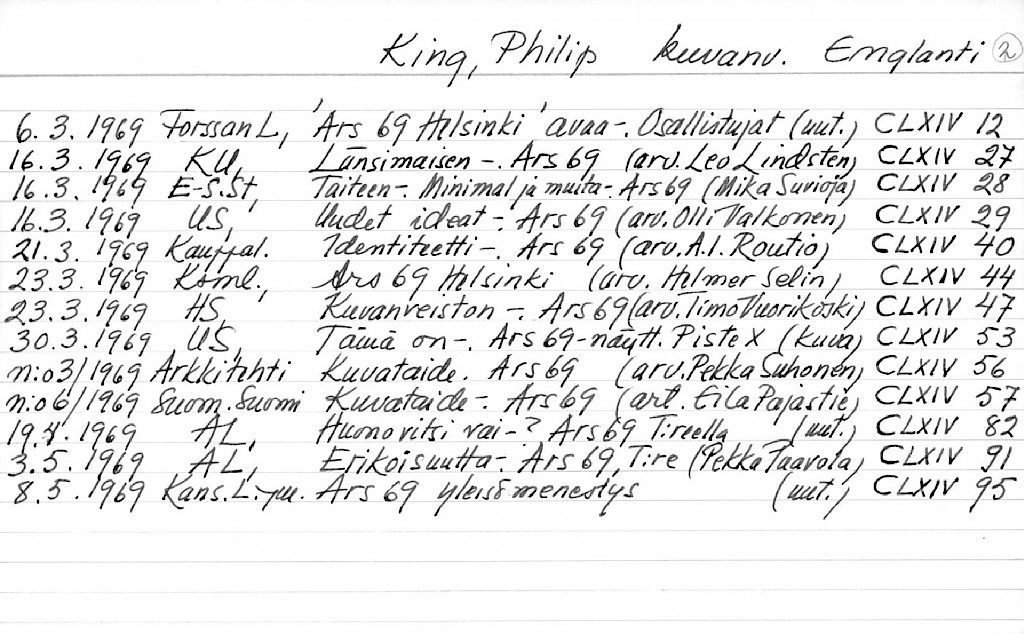 King, Philip kuvanv. Englanti 2
6.3.1969 Forssan L, 'Ars 69 Helsinki' avaa-. Osallistujat (uut.) CLXIV 12
16.3.1969 KU, Länsimaisen -. Ars 69 (arv. Leo Lindsten) CLXIV 27
16.3.1969 E-S.St, Taiteen-. Minimal ja muita-. Ars 69 (Mika Suvioja) CLXIV 28
16.3.1969 US, Uudet ideat-. Ars 69 (arv. Olli Valkonen) CLXIV 29
21.3.1969 Kauppal. Identiteetti-. Ars 69 (arv. A.I. Routio) CLXIV 40
23.3.1969 Koml., Ars 69 Helsinki (arv. Helmer Selin) CLXIV 44
23.3.1969 HS, Kuvanveiston -. Ars 69 (arv. Timo Vuorikoski) CLXIV 47
30.3.1969 US, Tämä on-. Ars 69-näytt. Piste X (kuva) CLXIV 53
n:o3/1969 Arkkitehti Kuvataide. Ars 69 (arv. Pekka Suhonen) CLXIV 56
n:o6/1969 Suom. Suomi Kuvataide-. Ars 69 (art. Eila Pajastie) CLXIV 57
19.4.1969 AL, Huono vitsi vai-? Ars 69 T:reella (uut.) CLXIV 82
3.5.1969 AL, Erikoisuutta-. Ars 69, T:re (Pekka Paavola) CLXIV 91
8.5.1969 Kans. L:ju. Ars 69 yleisömenestys (uut.) CLXIV 95